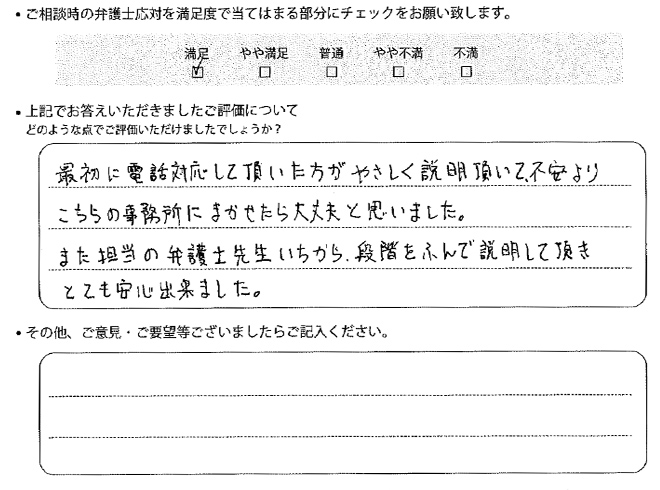 ・ご相談時の弁護士応対を満足度で当てはまる部分にチェックをお願い致します。
満足 やや満足 普通 やや不満 不満
☑ □ □ □ □
・上記でお答えいただきましたご評価について
どのような点でご評価いただけましたでしょうか？
最初に電話対応して頂いた方がやさしく説明頂いて、不安より
こちらの事務所にまかせたら大丈夫と思いました。
また担当の弁護士先生いちから、段階をふんで説明して頂き
とても安心出来ました。
・その他、ご意見・ご要望等ございましたらご記入ください。